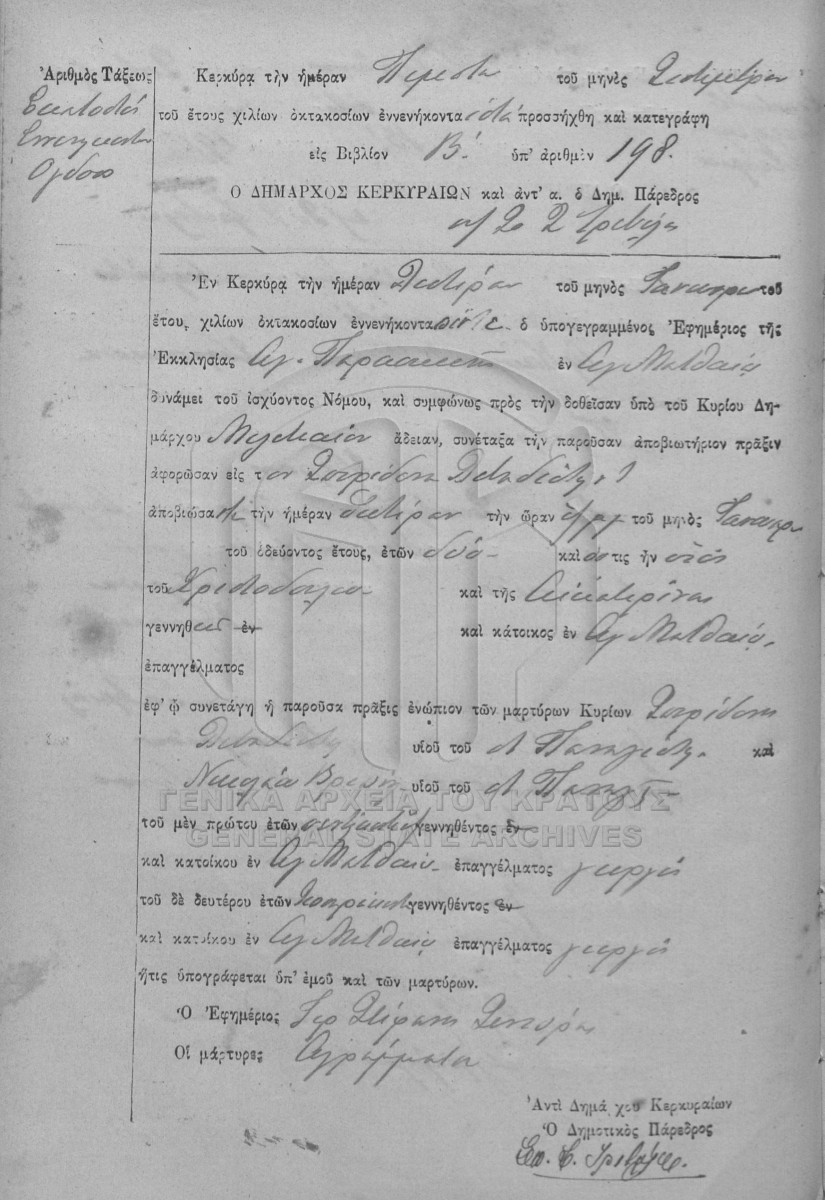 Ἀριθμὸς Τάξεως
Ἑκατοστή
Ἐννενηκοστὴ
Ὀγδόη
Κερκύρᾳ τὴν ἡμέραν Πέμπτην τοῦ μηνὸς Σεπτεμβρίου
τοῦ ἔτους χιλίων ὀκτακοσίων ἐννενήκοντα προσσήχθη καὶ κατεγράφη
εἰς Βιβλίον Β΄. ὑπ' ἀριθμὸν 198.
Ο ΔΗΜΑΡΧΟΣ ΚΕΡΚΥΡΑΙΩΝ καὶ ἀντ' α. ὁ Δημ. Πάρεδρος
Ἐν Κερκύρᾳ τὴν ἡμέραν Δευτέραν τοῦ μηνὸς Ἰανουαρίου τοῦ
ἔτους χιλίων ὀκτακοσίων ἐννενήκοντα πέντε ὁ ὑπογεγραμμένος Ἐφημέριος τῆς
Ἐκκλησίας Ἁγ. Παρασκευῆς ἐν Ἁγ Ματθαίῳ
δυνάμει τοῦ ἰσχύοντος Νόμου, καὶ συμφώνως πρὸς τὴν δοθεῖσαν ὑπὸ τοῦ Κυρίου Δη-
μάρχου Μελιτιαίων ἄδειαν, συνέταξα τὴν παροῦσαν ἀποβιωτήριον πρᾶξιν
ἀφορῶσαν εἰς τ ον Σπυρίδωνα
ἀποβιώσα τὴν ἡμέραν Δευτέραν τὴν ὥραν τοῦ μηνὸς Ἰανουαρίου
τοῦ ὁδεύοντος ἔτους, ἐτῶν δύο καὶ ὅστις ἦν υἱὸς
τοῦ Χριστοδούλου καὶ τῆς Αἰκατερίνης
γεννηθεὶς ἐν καὶ κάτοικος ἐν Ἁγ Ματθαίῳ.
ἐπαγγέλματος
ἐφ' ᾧ συνετάγη ἡ παροῦσα πρᾶξις ἐνώπιον τῶν μαρτύρων Κυρίων Σπυρίδωνος
υἱοῦ τοῦ Παναγιώτη καὶ
Νικολάου υἱοῦ τοῦ
ΓΕΝΙΚΑ ΑΡΧΕΙΑ ΤΟΥ ΚΡΑΤΟΥΣ
GENERAL STATE ARCHIVES
τοῦ μὲν πρώτου ἐτῶν πεντήκοντα γεννηθέντος ἐν
καὶ κατοίκου ἐν Ἁγ Ματθαίῳ ἐπαγγέλματος γεωργοῦ
τοῦ δὲ δευτέρου ἐτῶν γεννηθέντος ἐν
καὶ κατοίκου ἐν Ἁγ Ματθαίῳ ἐπαγγέλματος γεωργοῦ
ἥτις ὑπογράφεται ὑπ' ἐμοῦ καὶ τῶν μαρτύρων.
Ὁ Ἐφημέριος Ἱερ
Οἱ μάρτυρες Ἀγράμματοι
Ἀντὶ Δημάρχου Κερκυραίων
Ὁ Δημοτικὸς Πάρεδρος